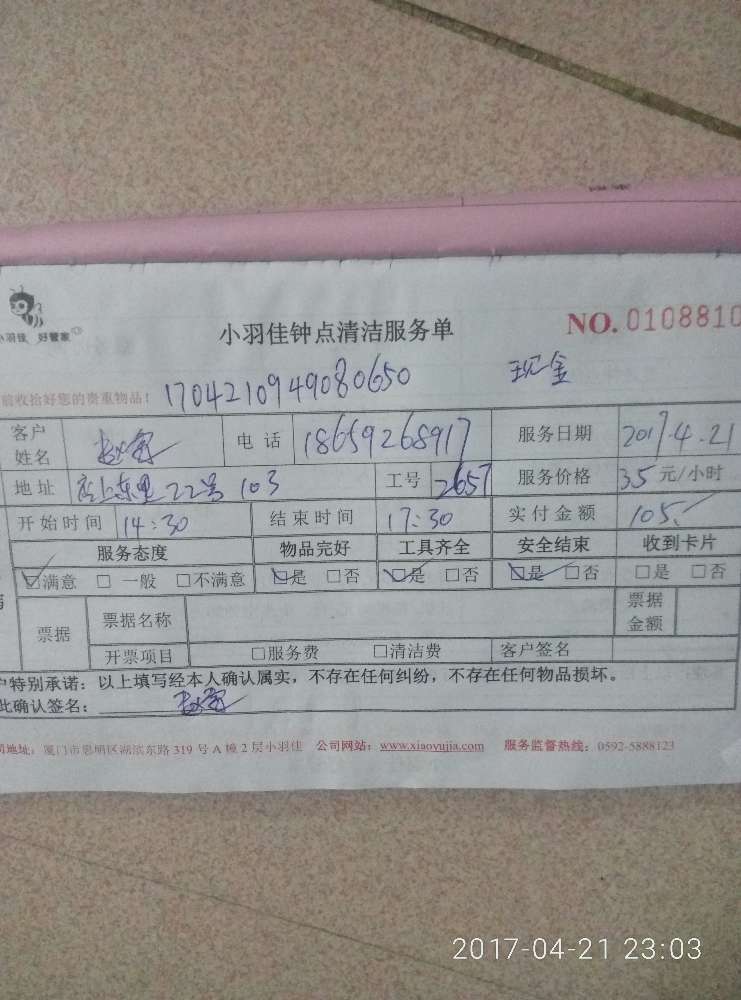 小羽佳 好管家
小羽佳钟点清洁服务单
NO. 0108810
前收拾好您的贵重物品! 1704210949080650 现金
客户姓名 电话 18659268917 服务日期 2017.4.21
地址 店上东里22号103 工号 2657 服务价格 35元/小时
开始时间 14:30 结束时间 17:30 实付金额 105
服务态度 物品完好 工具齐全 安全结束 收到卡片
☑满意 □一般 □不满意 ☑是 □否 ☑是 □否 ☑是 □否 □是 □否
票据 票据名称 票据金额
开票项目 □服务费 □清洁费 客户签名
户特别承诺：以上填写经本人确认属实，不存在任何纠纷，不存在任何物品损坏。
此确认签名：
司地址：厦门市思明区湖滨东路319号A幢2层小羽佳 公司网站：www.xiaoyujia.com 服务监督热线：0592-5888123
2017-04-21 23:03